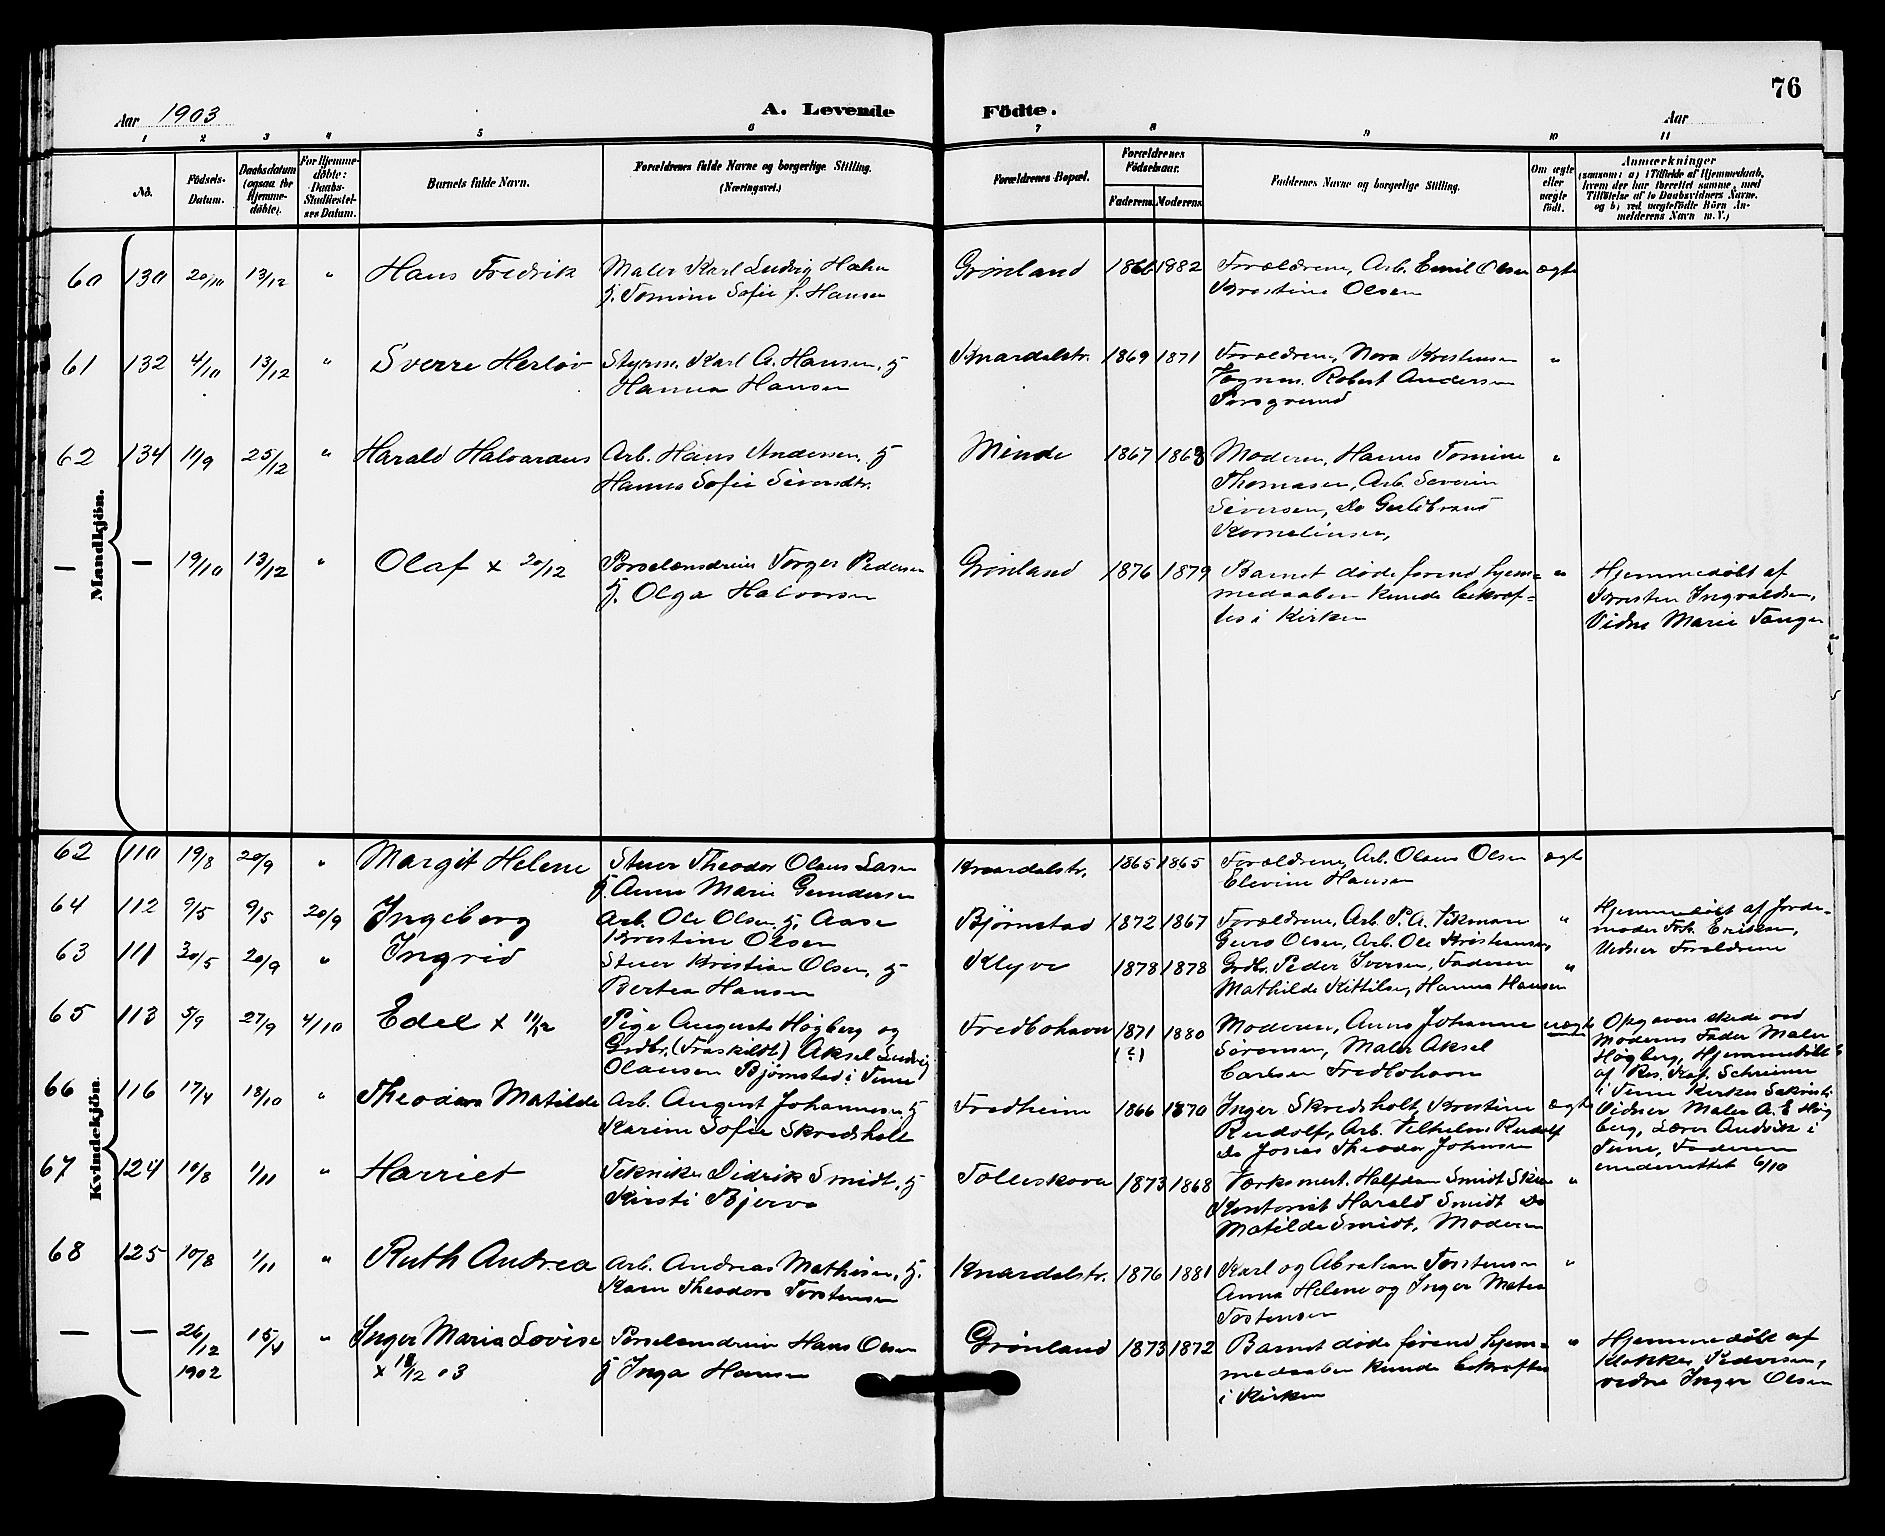 76
Aar 1903
A. Levende
Födte.
Aar
1 2 3 4 5 6 7 8 9 10 11
No.
Födsels-
Datum.
Daabsdatum
(ogsaa for
Hjemme-
döbte).
For Hjemme-
døbte:
Daabs-
Stadfæstel-
ses Datum.
Barnets fulde Navn.
Forældrenes fulde Navne og borgerlige Stilling.
(Næringsvei.)
Forældrenes Bopæl.
Forældrenes
Födselsaar.
Faderens
Moderens
Faddernes Navne og borgerlige Stilling.
Om ægte
eller
uægte
født.
Anmærkninger
(saasom: a) i Tilfælde af Hjemmedaab,
hvem der har forrettet samme, med
Tilföielse af to Daabsvidners Navne.
og b) ved uægtefödte Börn An-
melderens Navn m. V.)
Mandkjön.
60 130 20/10 13/12 " Hans Fredrik
Maler Karl Ludvig Hahn
h. Tomine Sofie f. Hansen
Grönland 1860 1882
Forældrene, Arb. Emil Olsen
Kristine Olsen
ægte
61 132 4/10 13/12 " Sverre Herløv
Styrm. Karl A. Hansen, h
Hanna Hansen
Knardalstr. 1869 1871
Forældrene, Nora Kristensen
Vognm. Robert Andersen
Porsgrund
"
62 134 11/9 25/12 " Harald Halvarans
Arb. Hans Andersen, h
Hanna Sofie Siversdtr.
Minde 1867 1868
Moderen, Hanna Tomine
Thomasen, Arb. Severin
Seversen, Do Guldbrand
Korneliusen,
"
— — 19/10 13/12 " Olaf x 20/12
Porselænsdreier Torger Pedersen
h. Olga Halvorsen
Grönland 1876 1879
Barnet døde førend hjem-
medaaben kunde bekræf-
tes i Kirken
"
Hjemmedøbt af
Kristen Ingvaldsen,
Vidne Marie Tangen
Kvindekjön.
62 110 19/8 20/9 " Margit Helene
Stuer Theodor Olaus Larsen
h. Anne Marie Gundersen
Knardalstr. 1865 1865
Forældrene, Arb. Olaus Olsen
Elevine Hansen
ægte
64 112 9/5 9/5 20/9 Ingeborg
Arb. Ole Olsen h. Aase
Kristine Olsen
Bjørnstad 1872 1867
Forældrene, Arb. P. A. Vikmann
Guro Olsen, Arb. Ole Kristensen,
"
Hjemmedøbt af Jorde-
moder Frk. Eriksen,
Vidner Forældrene
63 111 20/5 20/9 " Ingrid
Stuer Kristian Olsen, h
Bertea Hansen
Klyve 1878 1878
Grdbr. Peder Iversen, Faderen
Mathilde Kittilsen, Hanna Hansen
"
65 113 5/9 27/9 4/10 Edel x 11/12
Pige Augusta Högberg og
Grdbr. (Fraskildt) Aksel Ludvig
Olausen Bjørnstad i Tune
Fredbohavn 1871 (?) 1880
Moderen, Anna Johanne
Sørensen, Maler Aksel
Carlsen Fredbohavn
uægte
Opgaven skede ved
Moderens Fader Maler
Högberg, Hjemmedöbt
af Res. Kap. Schreiner
i Tune Kirkes Sakristi
Vidner Maler A. E Hög
berg, Lærer Andvik i
Tune, Faderen
underrettet 6/10
66 116 17/4 18/10 " Theodora Matilde
Arb. August Johannesen h
Karine Sofie Skredsholt
Fredheim 1866 1870
Inger Skredsholt, Kristine
Rudolf, Arb. Vilhelm Rudolf
Do Josias Theodor Johnsen
ægte
67 124 10/8 1/11 " Harriet
Tekniker Didrik Smidt, h
Kirsti Bjerva
Tollerskoven 1873 1868
Værksmest. Halfdan Smidt Skien
Kontorist Harald Smidt Do
Matilde Smidt, Moderen
"
68 125 10/8 1/11 " Ruth Andrea
Arb. Andreas Mathisen, h.
Karen Theodora Torstensen
Knardalstr. 1876 1881
Karl og Abraham Torstensen
Anna Helene og Inger Matea
Tostensen
"
— — 26/12 1902 15/4 " Inger Maria Lovise
x 18/12 03
Porselænsdreier Hans Olsen
h Inga Hansen
Grönland 1873 1872
Barnet døde førend hjem-
medaaben kunde bekræftes
i Kirken
"
Hjemmedöbt af
Klokker Pedersen,
vidne Inger Olsen